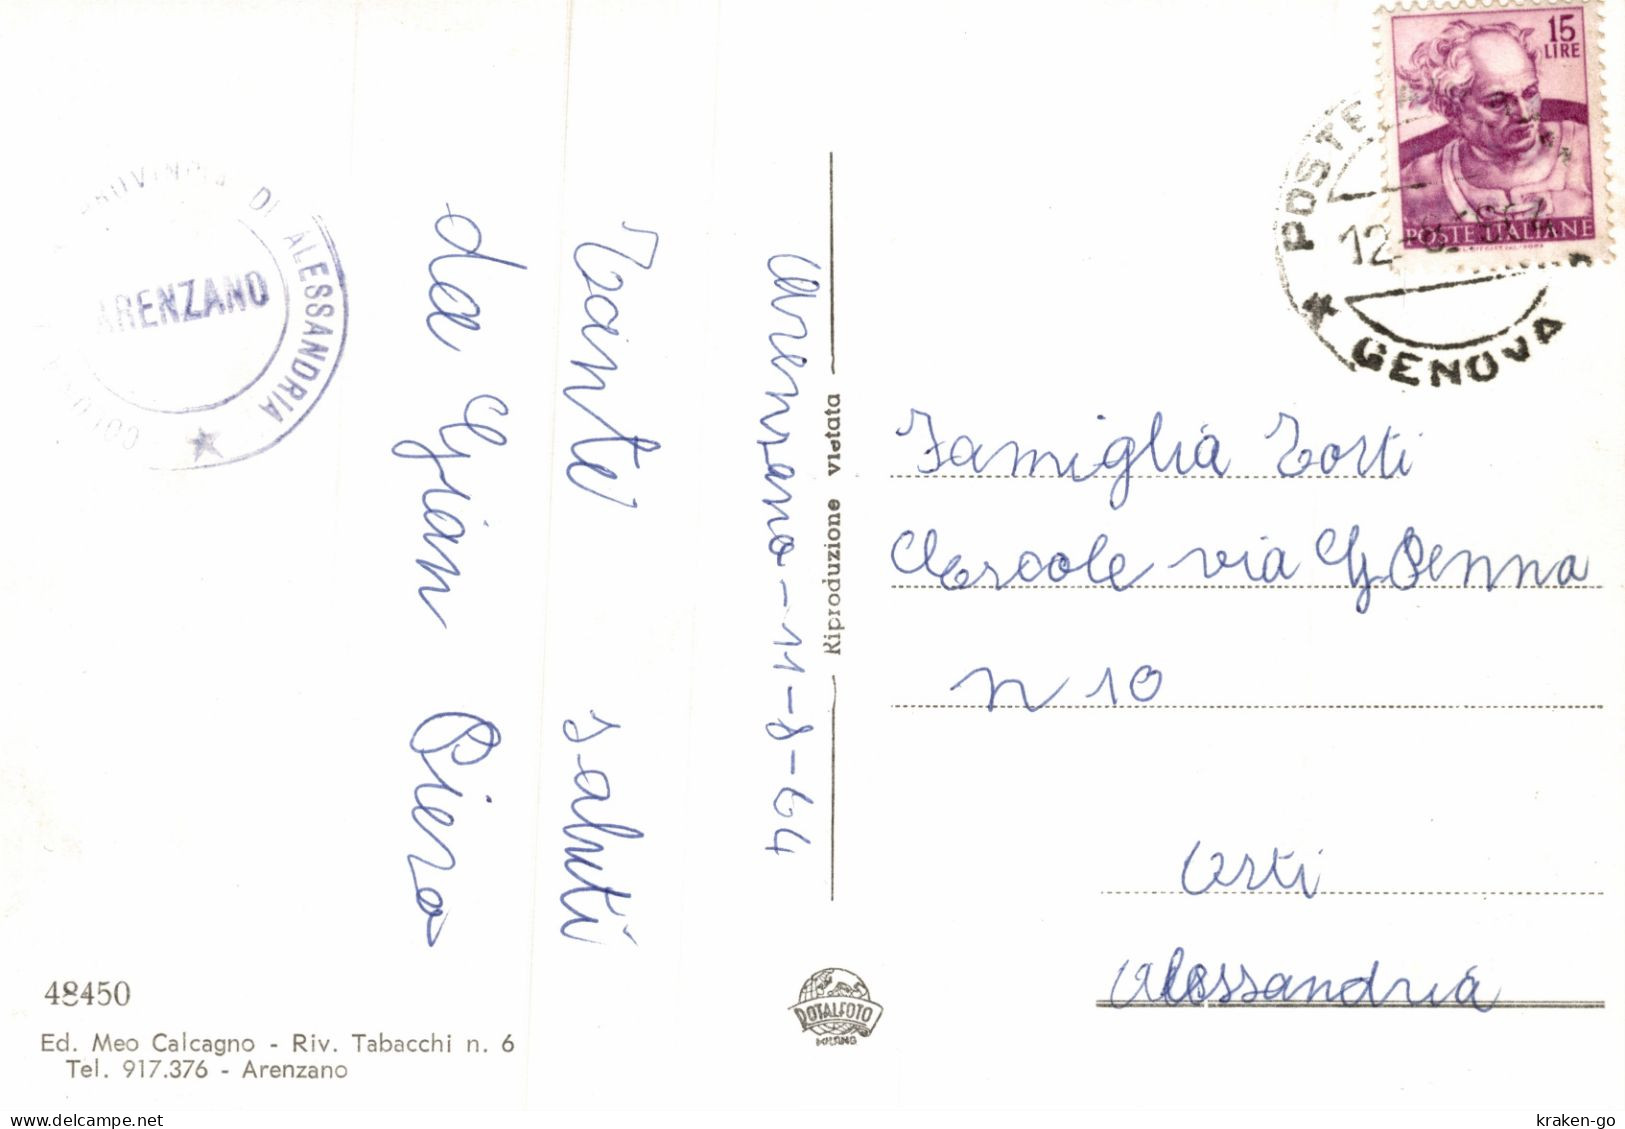 15
LIRE
POSTE ITALIANE
POSTE
12-8
GENOVA
PROVINCIA DI ALESSANDRIA
ARENZANO
COLONIA
Arenzano-11-8-64
Tante saluti
da Gian Piero
Riproduzione vietata
Famiglia Torti
Aercole via G Penna
n 10
Asti
Alessandria
ROTALFOTO
MILANO
48450
Ed. Meo Calcagno - Riv. Tabacchi n. 6
Tel. 917.376 - Arenzano
kraken-go